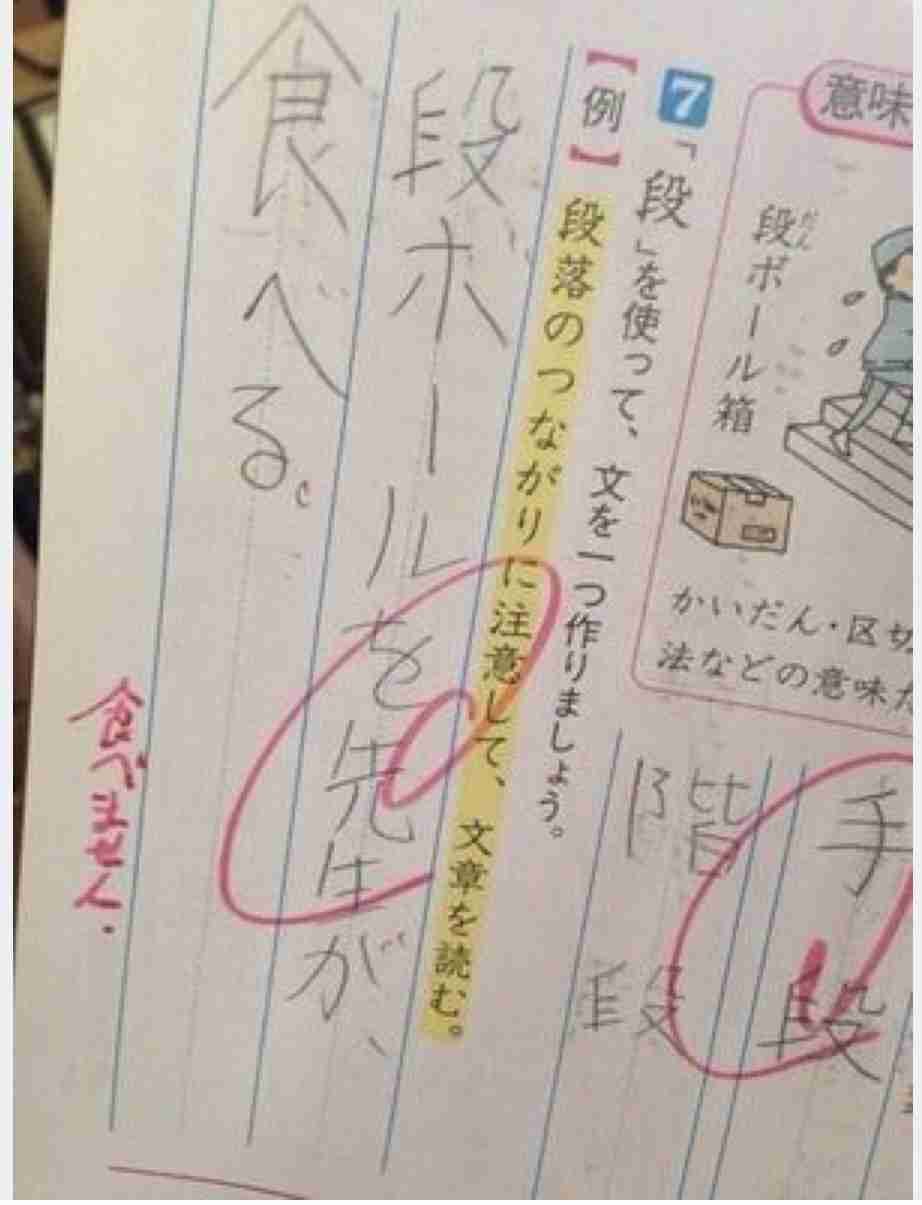 意味
だん
段ボール箱
かいだん・区切
法などの意味
手段
階段
7 「段」を使って、文を一つ作りましょう。
【例】段落のつながりに注意して、文章を読む。
段ボールを先生が、
食べる。
食べません.